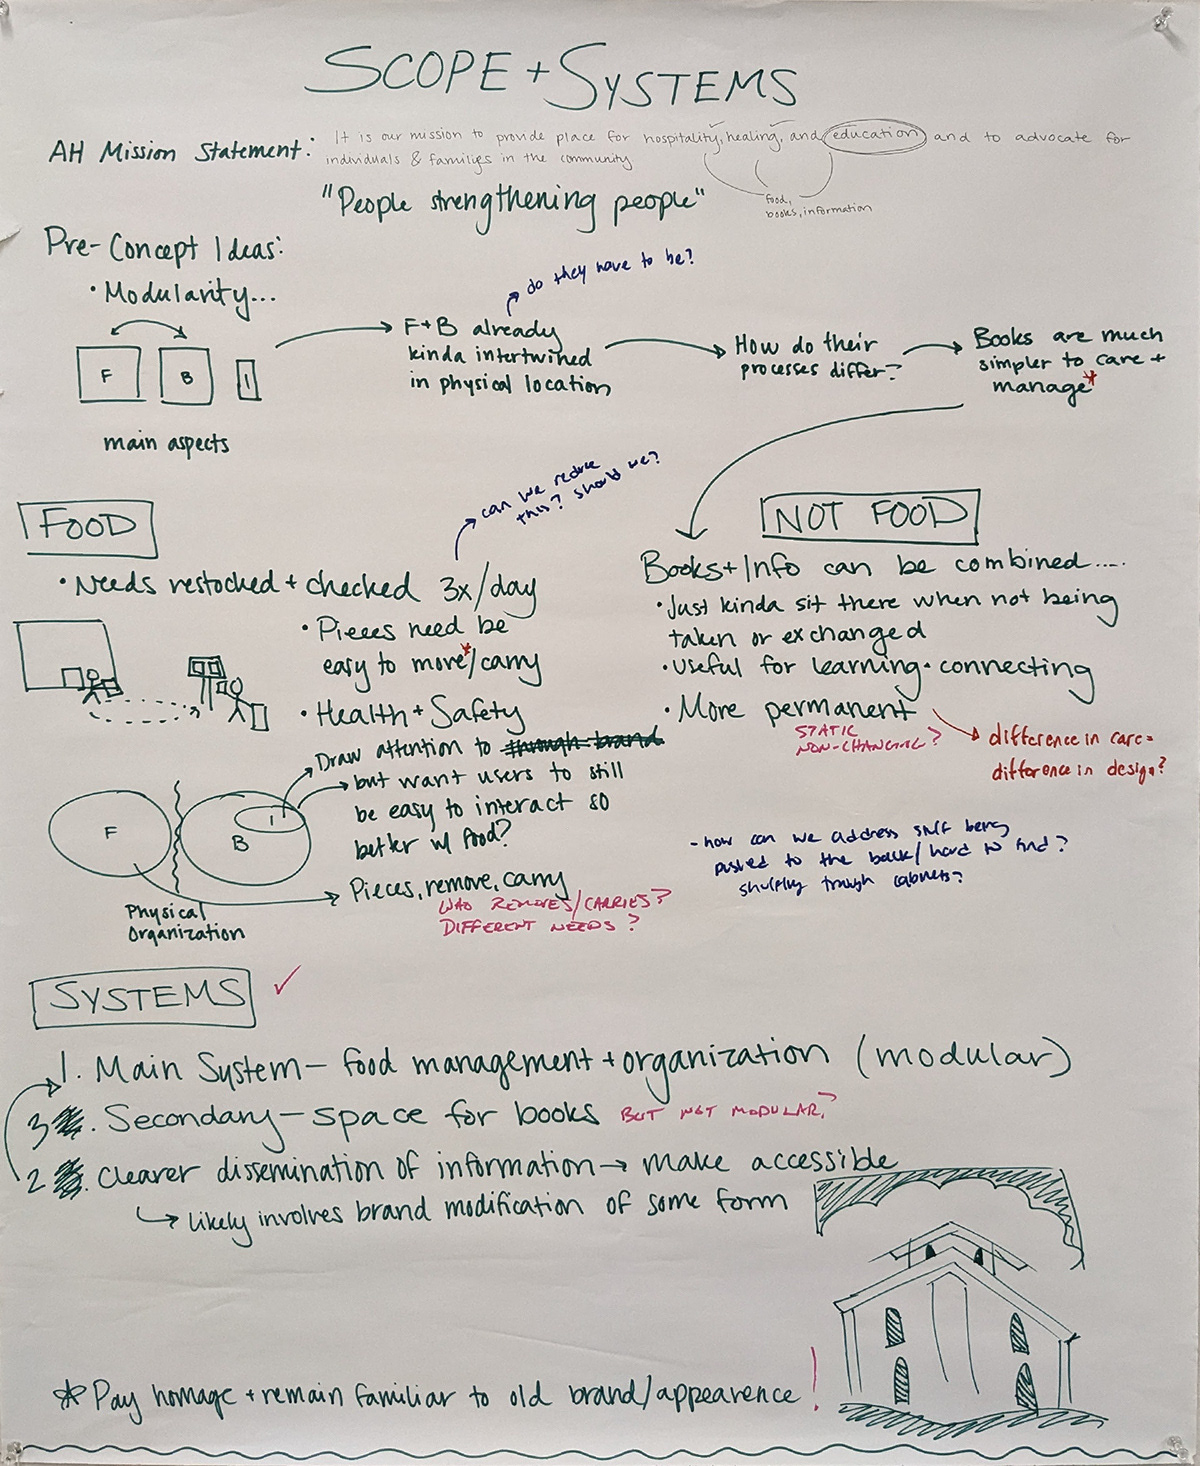 SCOPE + SYSTEMS
AH Mission Statement:
It is our mission to provide place for hospitality, healing, and education and to advocate for
individuals & families in the community
food,
books, information
"People strengthening people"
Pre-Concept Ideas:
• Modularity...
F B I
main aspects
F+B already
kinda intertwined
in physical location
do they have to be?
How do their
processes differ?
Books are much
simpler to care +
manage*
FOOD
• Needs restocked + checked 3x/day
can we reduce
this? should we?
• Pieces need be
easy to move*/carry
• Health + Safety
Draw attention to through brand
but want users to still
be easy to interact so
better w/ food?
F B I
Physical
Organization
Pieces, remove, carry
WHO REMOVES/CARRIES?
DIFFERENT NEEDS?
NOT FOOD
Books + Info can be combined....
• Just kinda sit there when not being
taken or exchanged
• Useful for learning • connecting
• More permanent
STATIC
NON-CHANGING?
difference in care =
difference in design?
- how can we address stuff being
pushed to the back/hard to find?
through cabinets?
SYSTEMS ✓
1. Main System – food management + organization (modular)
3 . Secondary – space for books BUT NOT MODULAR?
2 . Clearer dissemination of information → make accessible
↳ likely involves brand modification of some form
* Pay homage + remain familiar to old brand/appearence !